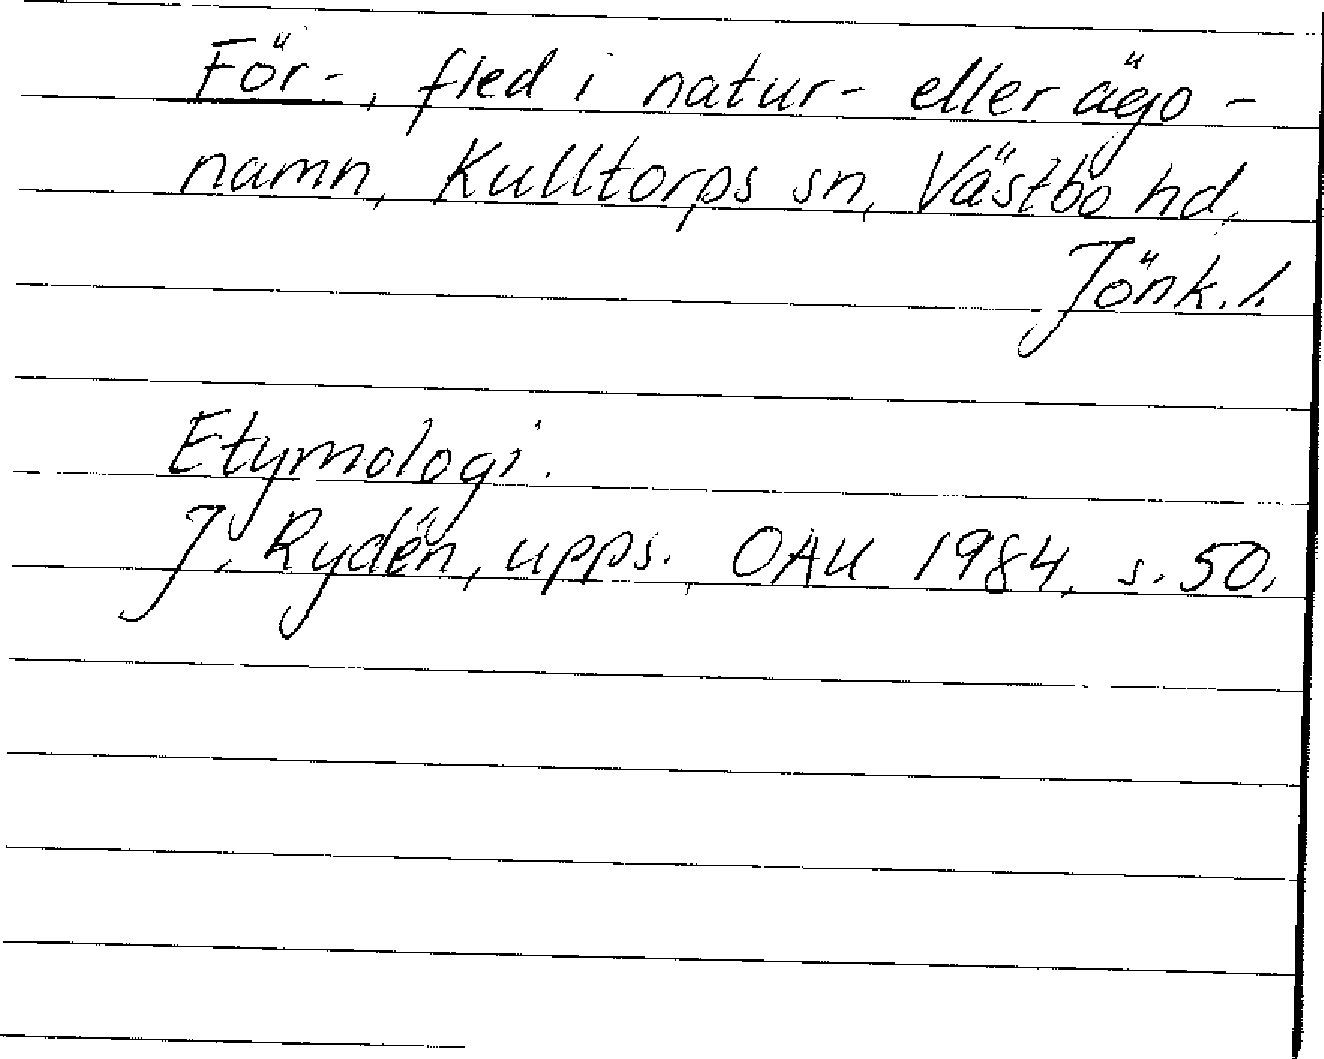 För-, fled i natur- eller ägo-
namn, Kulltorps sn, Västbo hd,
Jönk. l.
Etymologi.
J. Rydén, upps., OAU 1984, s. 50.